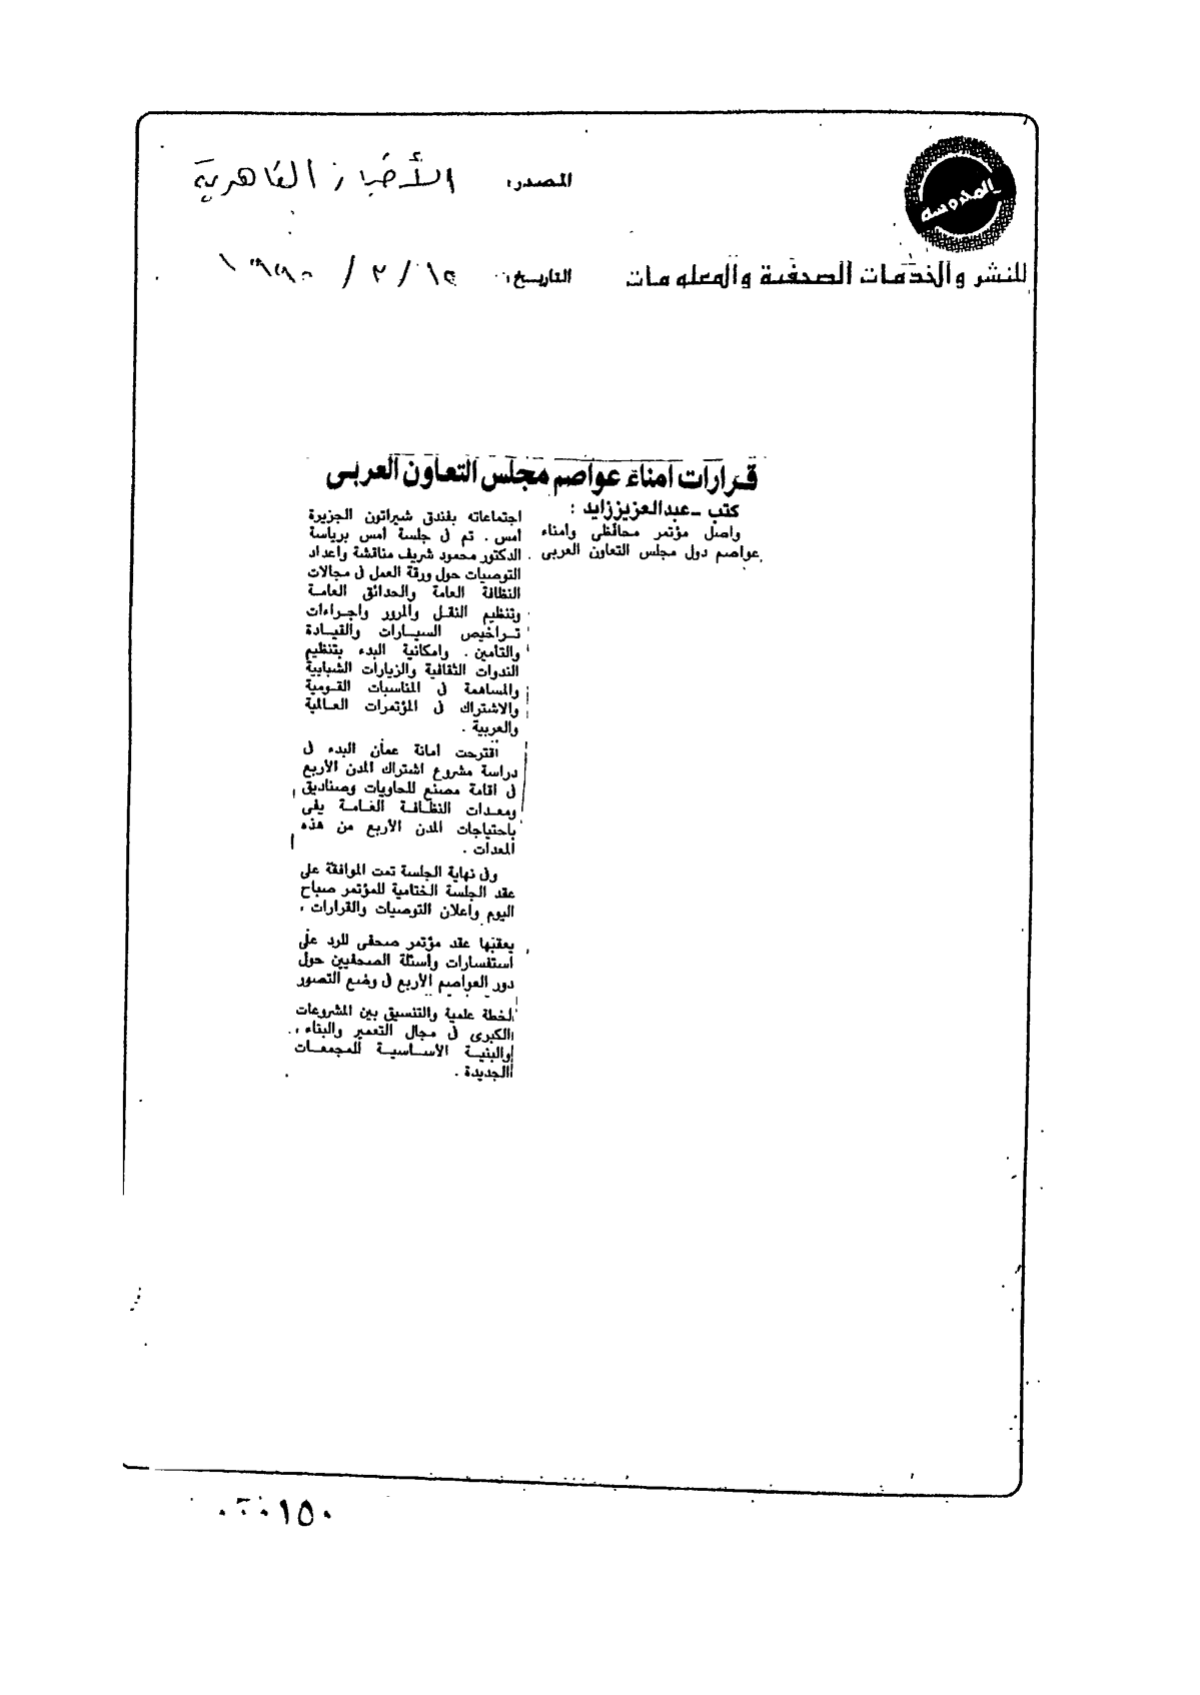 المحروسة
للنشر والخدمات الصحفية والمعلومات
المصدر: الأخبار القاهرية
التاريخ:
قرارات امناء عواصم مجلس التعاون العربى
كتب - عبدالعزيز زايد :
واصل مؤتمر محافظى وامناء
عواصم دول مجلس التعاون العربى
اجتماعاته بفندق شيراتون الجزيرة
امس . تم فى جلسة امس برياسة
الدكتور محمود شريف مناقشة واعداد
التوصيات حول ورقة العمل فى مجالات
النظافة العامة والحدائق العامة
وتنظيم النقل والمرور واجراءات
تراخيص السيارات والقيادة
والتامين . وامكانية البدء بتنظيم
الندوات الثقافية والزيارات الشبابية
والمساهمة فى المناسبات القومية
والاشتراك فى المؤتمرات العالمية
والعربية .
اقترحت امانة عمان البدء فى
دراسة مشروع اشتراك المدن الأربع
فى اقامة مصنع للحاويات وصناديق
ومعدات النظافة العامة يفى
باحتياجات المدن الأربع من هذه
المعدات .
وفى نهاية الجلسة تمت الموافقة على
عقد الجلسة الختامية للمؤتمر صباح
اليوم واعلان التوصيات والقرارات .
يعقبها عقد مؤتمر صحفى للرد على
استفسارات واسئلة الصحفيين حول
دور العواصم الأربع فى وضع التصور
لخطة علمية والتنسيق بين المشروعات
الكبرى فى مجال التعمير والبناء ،
والبنية الأساسية للمجمعات
الجديدة .